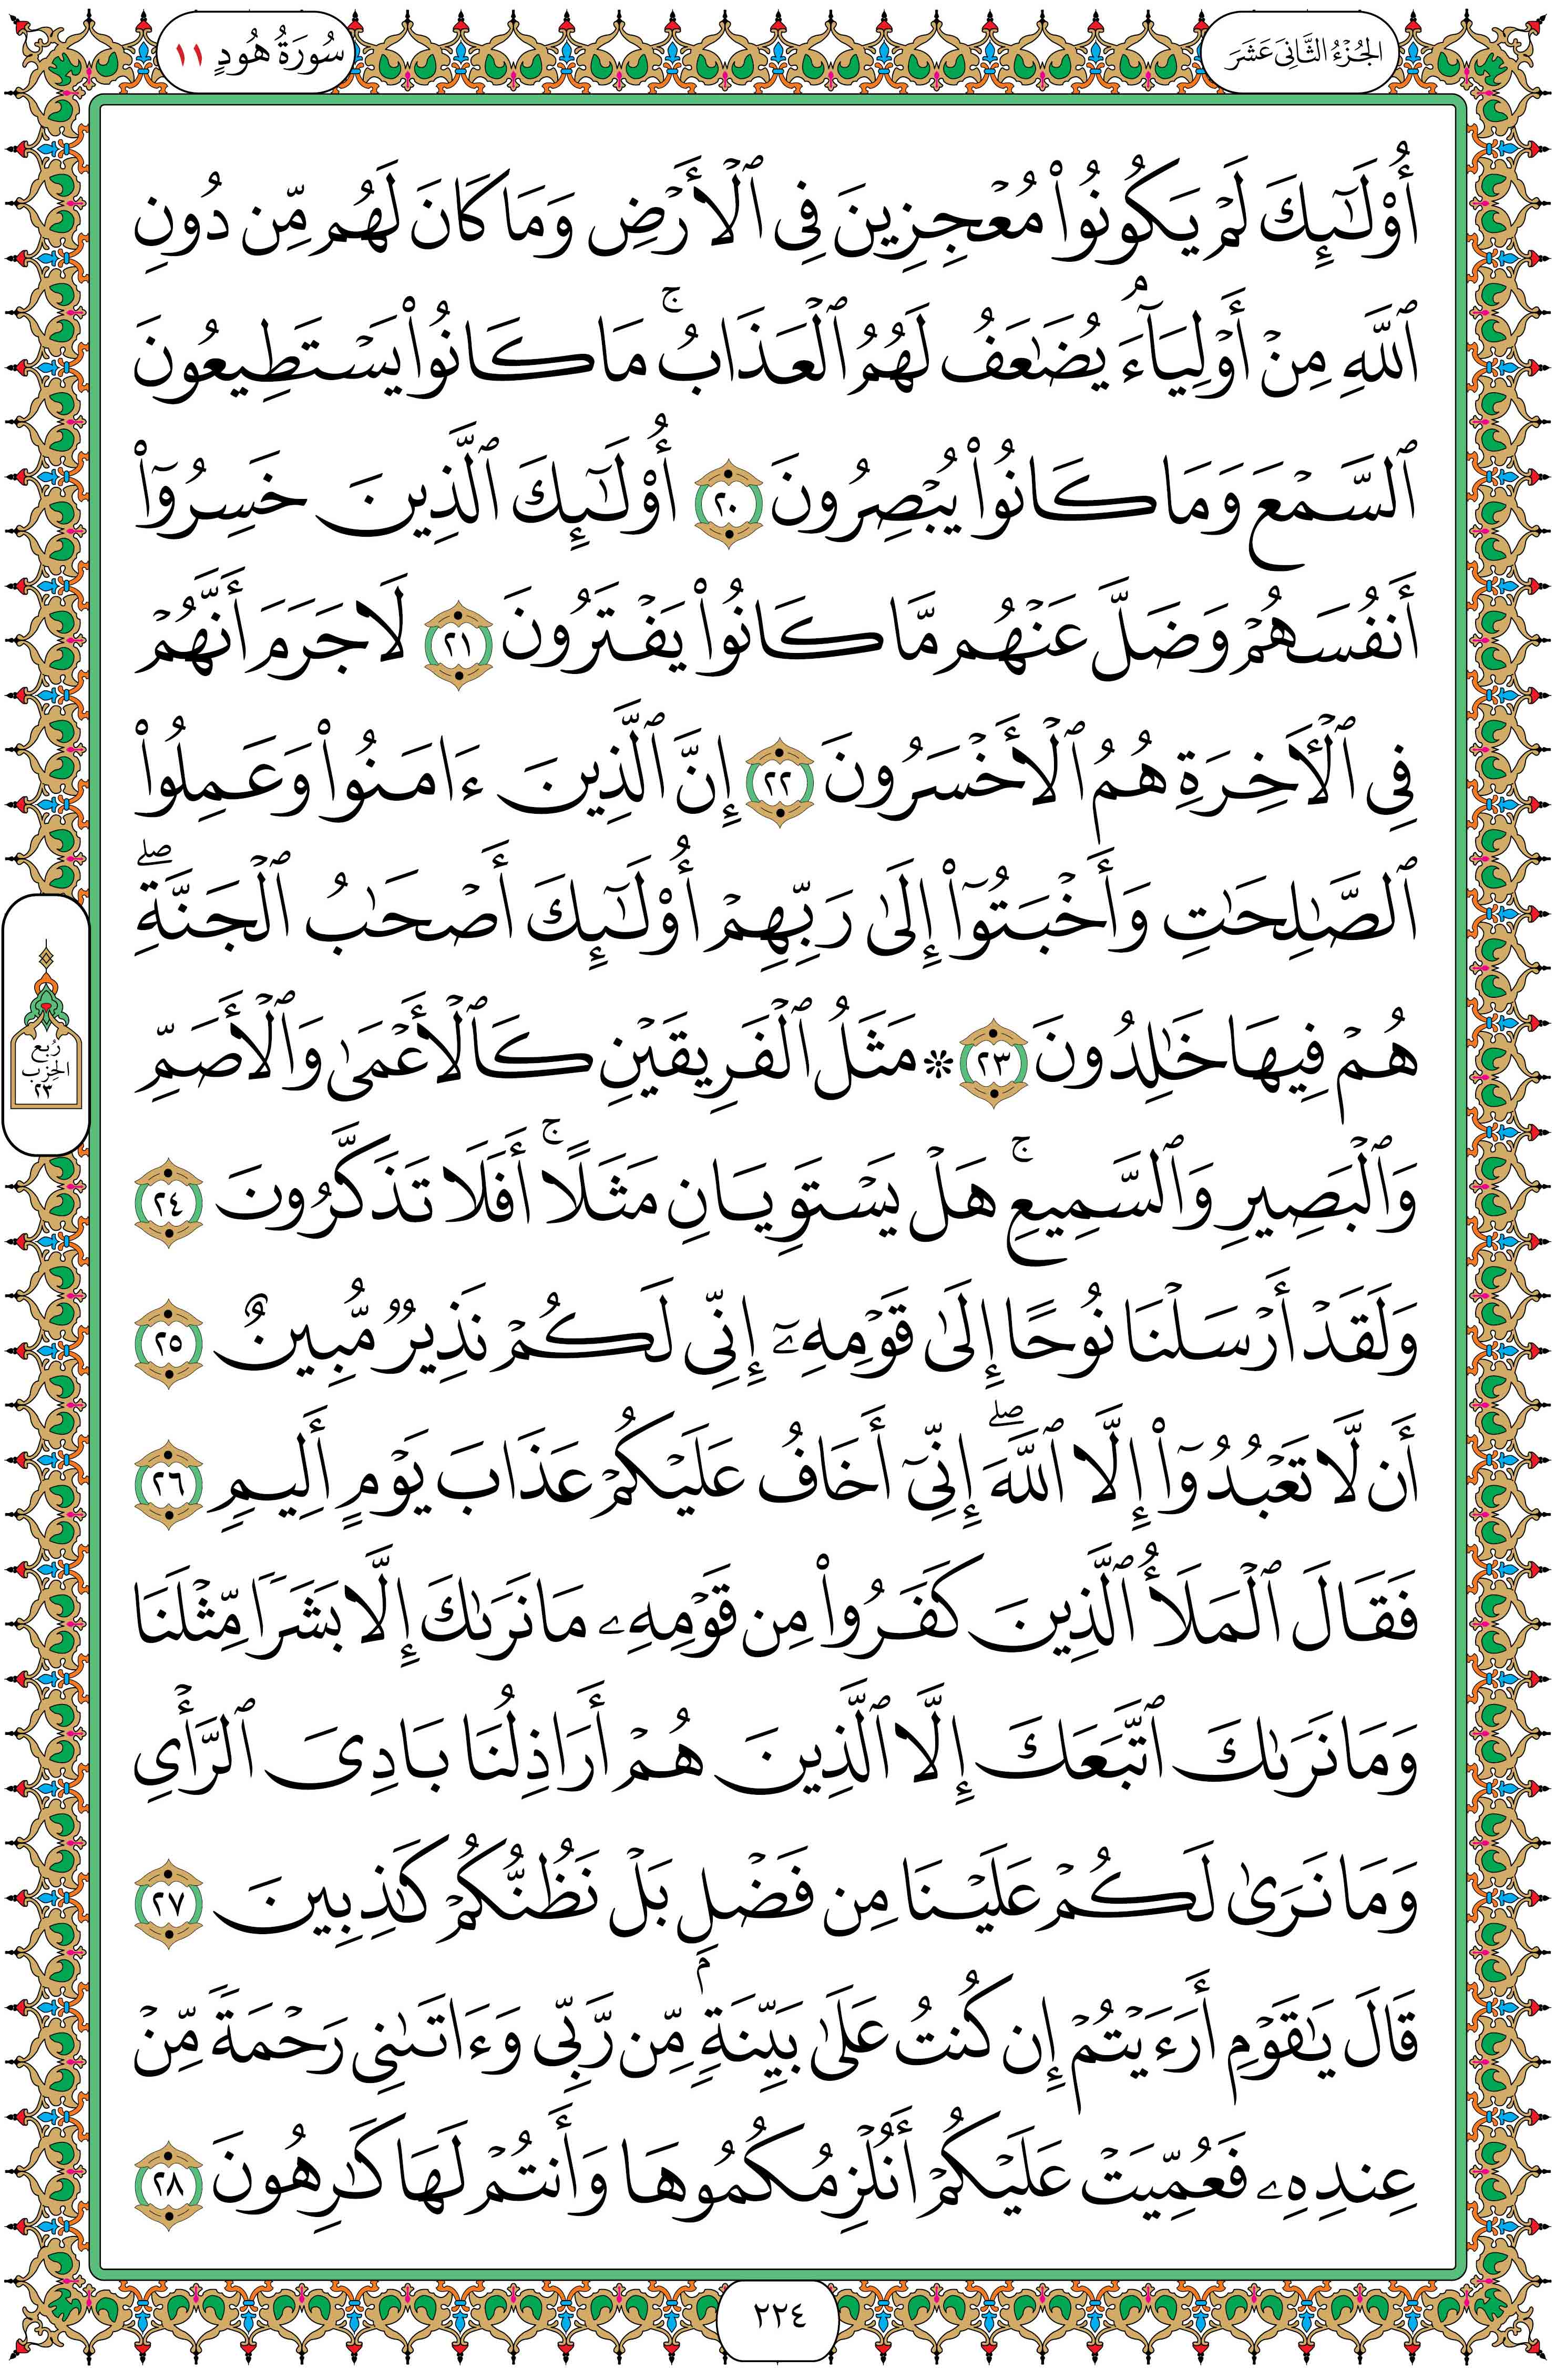 الجُزْءُ الثَّانِيَ عَشَرَ
سُورَةُ هُودٍ ١١
أُوْلَٰٓئِكَ لَمْ يَكُونُواْ مُعْجِزِينَ فِى ٱلْأَرْضِ وَمَا كَانَ لَهُم مِّن دُونِ
ٱللَّهِ مِنْ أَوْلِيَآءَ ۘ يُضَٰعَفُ لَهُمُ ٱلْعَذَابُ ۚ مَا كَانُواْ يَسْتَطِيعُونَ
ٱلسَّمْعَ وَمَا كَانُواْ يُبْصِرُونَ ٢٠ أُوْلَٰٓئِكَ ٱلَّذِينَ خَسِرُوٓاْ
أَنفُسَهُمْ وَضَلَّ عَنْهُم مَّا كَانُواْ يَفْتَرُونَ ٢١ لَا جَرَمَ أَنَّهُمْ
فِى ٱلْأَخِرَةِ هُمُ ٱلْأَخْسَرُونَ ٢٢ إِنَّ ٱلَّذِينَ ءَامَنُواْ وَعَمِلُواْ
ٱلصَّٰلِحَٰتِ وَأَخْبَتُوٓاْ إِلَىٰ رَبِّهِمْ أُوْلَٰٓئِكَ أَصْحَٰبُ ٱلْجَنَّةِ ۖ
هُمْ فِيهَا خَٰلِدُونَ ٢٣ ۞ مَثَلُ ٱلْفَرِيقَيْنِ كَٱلْأَعْمَىٰ وَٱلْأَصَمِّ
وَٱلْبَصِيرِ وَٱلسَّمِيعِ ۚ هَلْ يَسْتَوِيَانِ مَثَلًا ۚ أَفَلَا تَذَكَّرُونَ ٢٤
وَلَقَدْ أَرْسَلْنَا نُوحًا إِلَىٰ قَوْمِهِۦٓ إِنِّى لَكُمْ نَذِيرٌ مُّبِينٌ ٢٥
أَن لَّا تَعْبُدُوٓاْ إِلَّا ٱللَّهَ ۖ إِنِّىٓ أَخَافُ عَلَيْكُمْ عَذَابَ يَوْمٍ أَلِيمٍ ٢٦
فَقَالَ ٱلْمَلَأُ ٱلَّذِينَ كَفَرُواْ مِن قَوْمِهِۦ مَا نَرَىٰكَ إِلَّا بَشَرًا مِّثْلَنَا
وَمَا نَرَىٰكَ ٱتَّبَعَكَ إِلَّا ٱلَّذِينَ هُمْ أَرَاذِلُنَا بَادِىَ ٱلرَّأْىِ
وَمَا نَرَىٰ لَكُمْ عَلَيْنَا مِن فَضْلٍۭ بَلْ نَظُنُّكُمْ كَٰذِبِينَ ٢٧
قَالَ يَٰقَوْمِ أَرَءَيْتُمْ إِن كُنتُ عَلَىٰ بَيِّنَةٍ مِّن رَّبِّى وَءَاتَىٰنِى رَحْمَةً مِّنْ
عِندِهِۦ فَعُمِّيَتْ عَلَيْكُمْ أَنُلْزِمُكُمُوهَا وَأَنتُمْ لَهَا كَٰرِهُونَ ٢٨
رُبع
الحِزب
٢٣
٢٢٤